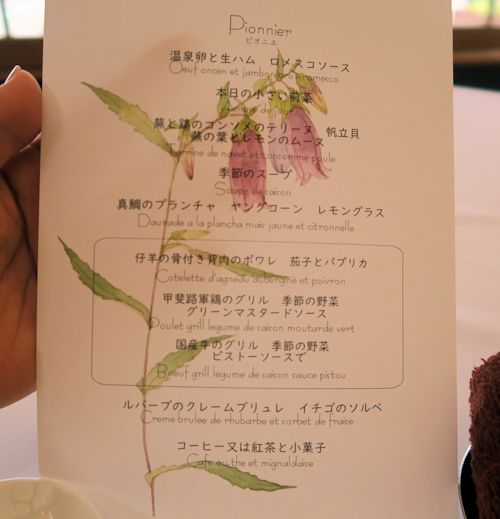 Pionnier
ピオニエ
温泉卵と生ハム　ロメスコソース
Oeuf onsen et jambon cru romesco
本日の小さい前菜
蕪と鶏のコンソメのテリーヌ　帆立貝
蕪の葉とレモンのムース
Terrine de navet et consomme poule
季節のスープ
Soupe de saison
真鯛のプランチャ　ヤングコーン　レモングラス
Daurade a la plancha mais jaune et citronnelle
仔羊の骨付き背肉のポワレ　茄子とパプリカ
Cotelette d'agneau aubergine et poivron
甲斐路軍鶏のグリル　季節の野菜
グリーンマスタードソース
Poulet grill legume de saison moutarde vert
国産牛のグリル　季節の野菜
ピストーソースで
Boeuf grill legume de saison sauce pistou
ルバーブのクレームブリュレ　イチゴのソルベ
Creme brulee de rhubarbe et sorbet de fraise
コーヒー又は紅茶と小菓子
Cafe ou the et mignaldaise